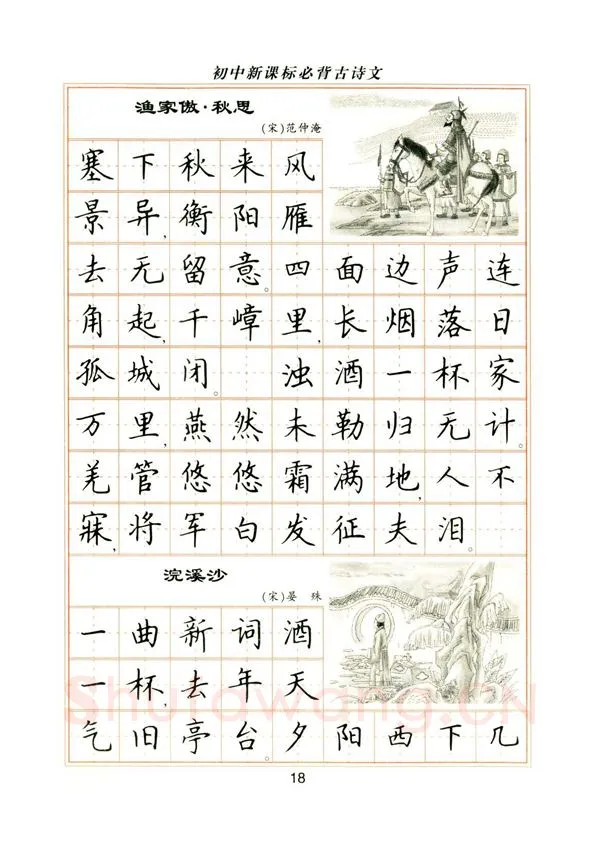 初中新课标必背古诗文
渔家傲·秋思
(宋)范仲淹
塞下秋来风
景异,衡阳雁
去无留意。四面边声连
角起,千嶂里,长烟落日
孤城闭。 浊酒一杯家
万里,燕然未勒归无计。
羌管悠悠霜满地,人不
寐,将军白发征夫泪。
浣溪沙
(宋)晏 殊
一曲新词酒
一杯,去年天
气旧亭台。夕阳西下几
Shufawang.CN
18